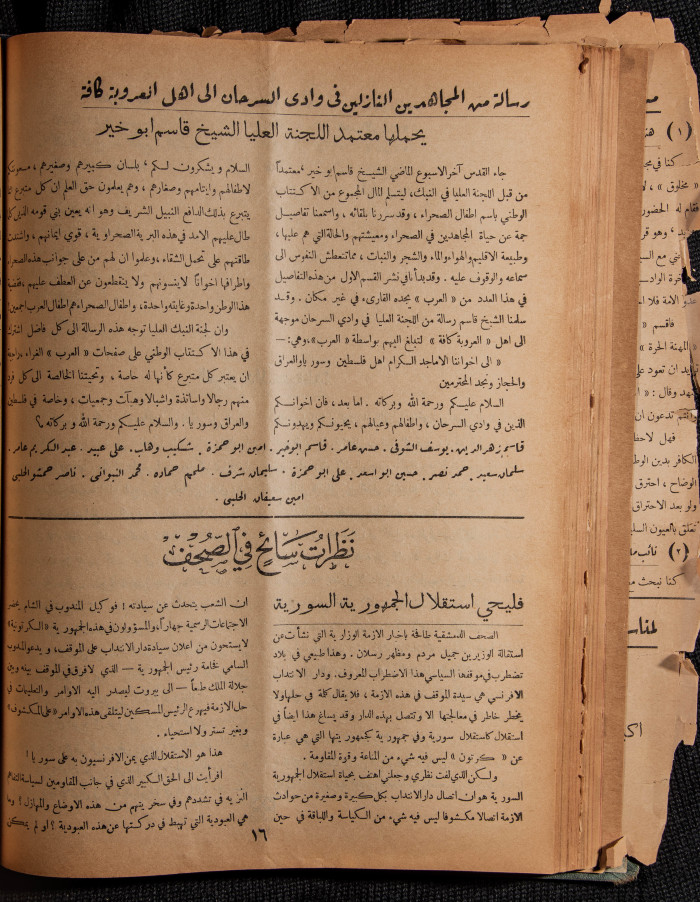 رسالة من المجاهدين النازلين فى وادى السرحان الى اهل العروبة كافة
يحملها معتمد اللجنة العليا الشيخ قاسم ابو خير
جاء القدس آخر الاسبوع الماضي الشيخ قاسم ابو خير ، معتمداً
من قبل اللجنة العليا في النبك، ليتسلم المال المجموع من الاكتتاب
الوطني باسم اطفال الصحراء ، وقد سررنا بلقائه ، واسمعنا تفاصيل
جمة عن حياة المجاهدين في الصحراء ومعيشتهم والحالة التي هم عليها،
وطبيعة الاقليم والهواء والماء والشجر والنبات ، مما تتعطش النفوس الى
سماعه والوقوف عليه . وقد بدأنا في نشر القسم الاول من هذه التفاصيل
في هذا العدد من « العرب » يجده القارىء في غير مكان . وقد
سلمنا الشيخ قاسم رسالة من اللجنة العليا في وادي السرحان موجهة
الى اهل « العروبة كافة » لتبلغ اليهم بواسطة « العرب »، وهي : —
« الى اخواننا الاماجد الكرام اهل فلسطين وسوريا والعراق
والحجاز ونجد المحترمين
السلام عليكم ورحمة الله وبركاته . اما بعد ، فان اخوانكم
الذين في وادي السرحان ، واطفالهم وعيالهم ، يحيونكم ويهدونكم
السلام ويشكرون لكم ، بلسان كبيرهم وصغيرهم ،
لاطفالهم وايتامهم وصغارهم ، وهم يعلمون حق العلم ان كل متبرع
يتبرع بذلك الدافع النبيل الشريف وهو انه يعين بني قومه الذين
طال عليهم الامد في هذه البرية الصحراوية ، قوي ايمانهم ، واشتدت
طاقتهم على تحمل الشقاء ، وعلموا ان لهم من على جوانب هذه الصحراء
واطرافها اخواناً لا ينسونهم ولا ينقطعون عن العطف عليهم ،
هذا الوطن واحدة وغايته واحدة ، واطفال الصحراء هم اطفال العرب اجمعين
وان لجنة النبك العليا توجه هذه الرسالة الى كل فاضل اشترك
في هذا الاكتتاب الوطني على صفحات « العرب » الغراء ، راجية
ان يعتبر كل متبرع كأنها له خاصة ، وتحيتنا الخالصة الى كل فرد
منهم رجالا واساتذة واشبالا وهيآت وجمعيات ، وخاصة في فلسطين
والعراق وسوريا . والسلام عليكم ورحمة الله وبركاته »
قاسم زهر الدين . يوسف الشوفى . حسن عامر . قاسم ابو خير . امين ابو حمزة . شكيب وهاب . على عبيد . عبد الكريم عامر .
سلمان سعيد . حمد نصر . حسين ابو اسعد . على ابو حمزة . سليمان شرف . ملحم حماده . محمد النبوانى . ناصر الحلبى
امين سعيفان الحلبى .
نَظَرَاتُ سَائِحٍ فِي الصُّحُفِ
فليحي استقلال الجمهورية السورية
الصحف الدمشقية طافحة باخبار الازمة الوزارية التي نشأت عن
استقالة الوزيرين جميل مردم ومظهر رسلان . وهذا طبيعي في بلاد
تضطرب في موقفها السياسي هذا الاضطراب المعروف . ودار الانتداب
الافرنسي هي سيدة الموقف في هذه الازمة ، فلا يقال كلمة في حلها ولا
يخطر خاطر في معالجتها الا وتتصل بهذه الدار وقد يساغ هذا ايضاً في
استقلال كاستقلال سورية وفي جمهورية كجمهوريتها التي هي عبارة
عن « كرتون » ليس فيه شيء من المناعة وقوة المقاومة .
ولكن الذي لفت نظري وجعلني اهتف بحياة استقلال الجمهورية
السورية هو ان اتصال دار الانتداب بكل كبيرة وصغيرة من حوادث
الازمة اتصالا مكشوفا ليس فيه شيء من الكياسة واللباقة في حين
ان الشعب يتحدث عن سيادته ! فوكيل المندوب في الشام يحضر
الاجتماعات الرسمية جهاراً ، والمسؤولون في هذه الجمهورية « الكرتونية »
لا يستحون من اعلان سيادة دار الانتداب على الموقف ، ويدعو المندوب
السامي فخامة رئيس الجمهورية — الذي لا فرق في الموقف بينه وبين
جلالة الملك طبعاً — الى بيروت ليصدر اليه الاوامر والتعليمات في
حل الازمة فيهرع الرئيس المسكين ليتلقى هذه الاوامر « على المكشوف »
وبغير تستر ولا استحياء .
هذا هو الاستقلال الذي يمن الافرنسيون به على سوريا !
افرأيت الى الحق الكبير الذي في جانب المقاومين لسياسة
النزيه في تشددهم وفي سخريتهم من هذه الاوضاع والمهازل !
هي العبودية التي تهبط في دركتها عن هذه العبودية ؟ او لم يمكن
١٦
(١)
(٢) نائب
كنا نبحث